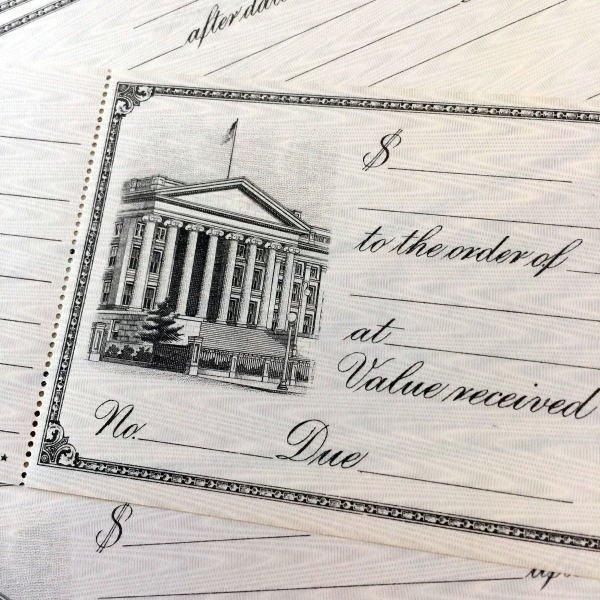 after date
$
to the order of
at
Value received
No.
Due
$